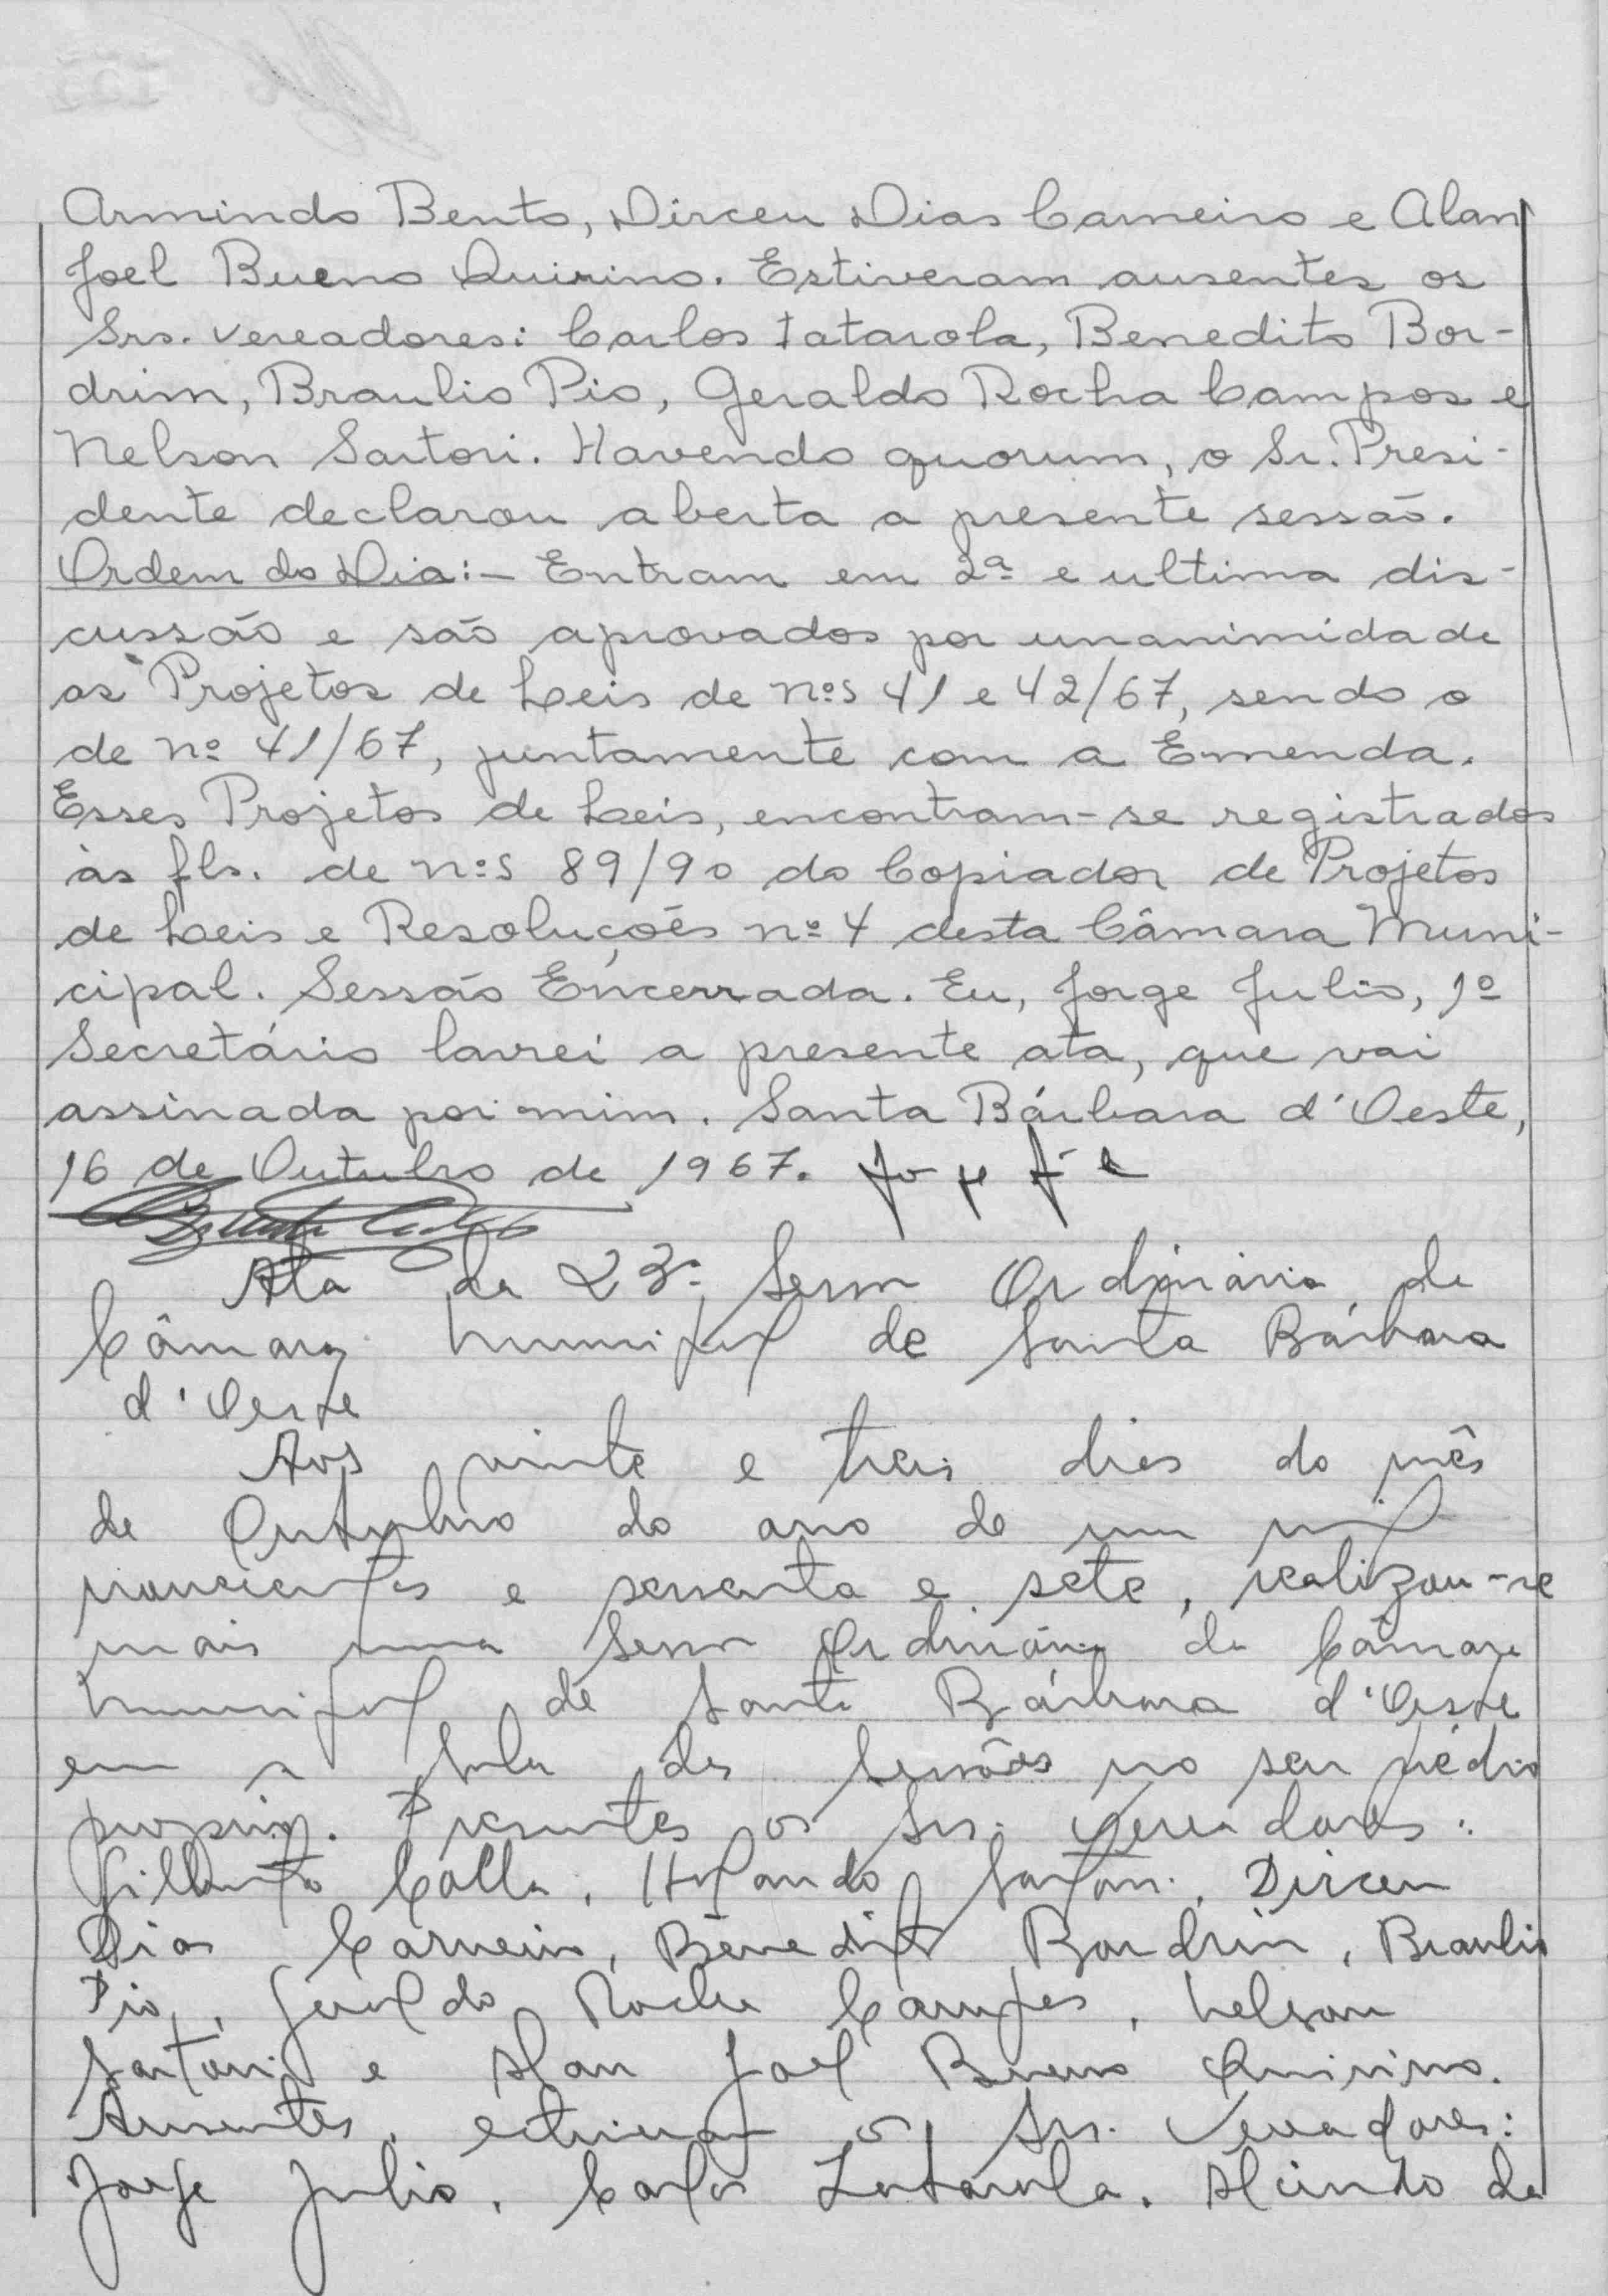 Armindo Bento, Dirceu Dias Carneiro e Alan
Joel Bueno Quirino. Estiveram ausentes os
Srs. vereadores: Carlos Tatarola, Benedito Bor-
drim, Braulio Pio, Geraldo Rocha Campos e
Nelson Sartori. Havendo quorum, o Sr. Presi-
dente declarou aberta a presente sessão.
Ordem do Dia:- Entram em 2ª e ultima dis-
cussão e são aprovados por unanimidade
os Projetos de Leis de nºs 41 e 42/67, sendo o
de nº 41/67, juntamente com a Emenda.
Esses Projetos de Leis, encontram-se registrados
às fls. de nºs 89/90 do Copiador de Projetos
de Leis e Resoluções nº 4 desta Câmara Muni-
cipal. Sessão Encerrada. Eu, Jorge Julio, 1º
Secretário lavrei a presente ata, que vai
assinada por mim. Santa Bárbara d'Oeste,
16 de Outubro de 1967.
Ata da 23ª Sessão Ordinária da
Câmara Municipal de Santa Bárbara
d'Oeste
Aos vinte e treis dias do mês
de Outubro do ano de um mil
novecentos e sessenta e sete, realizou-se
mais uma Sessão Ordinária da Câmara
Municipal de Santa Bárbara d'Oeste
em a Sala das Sessões no seu prédio
proprio. Presentes os Srs. Vereadores:
Gilberto Calla, Holando Sartori, Dirceu
Dias Carneiro, Benedito Bordrin, Braulio
Pio, Geraldo Rocha Campos, Nelson
Sartori e Alan Joel Bueno Quirino.
Ausentes, estiveram os Srs. Vereadores:
Jorge Julio, Carlos Tatarola, Alcindo da